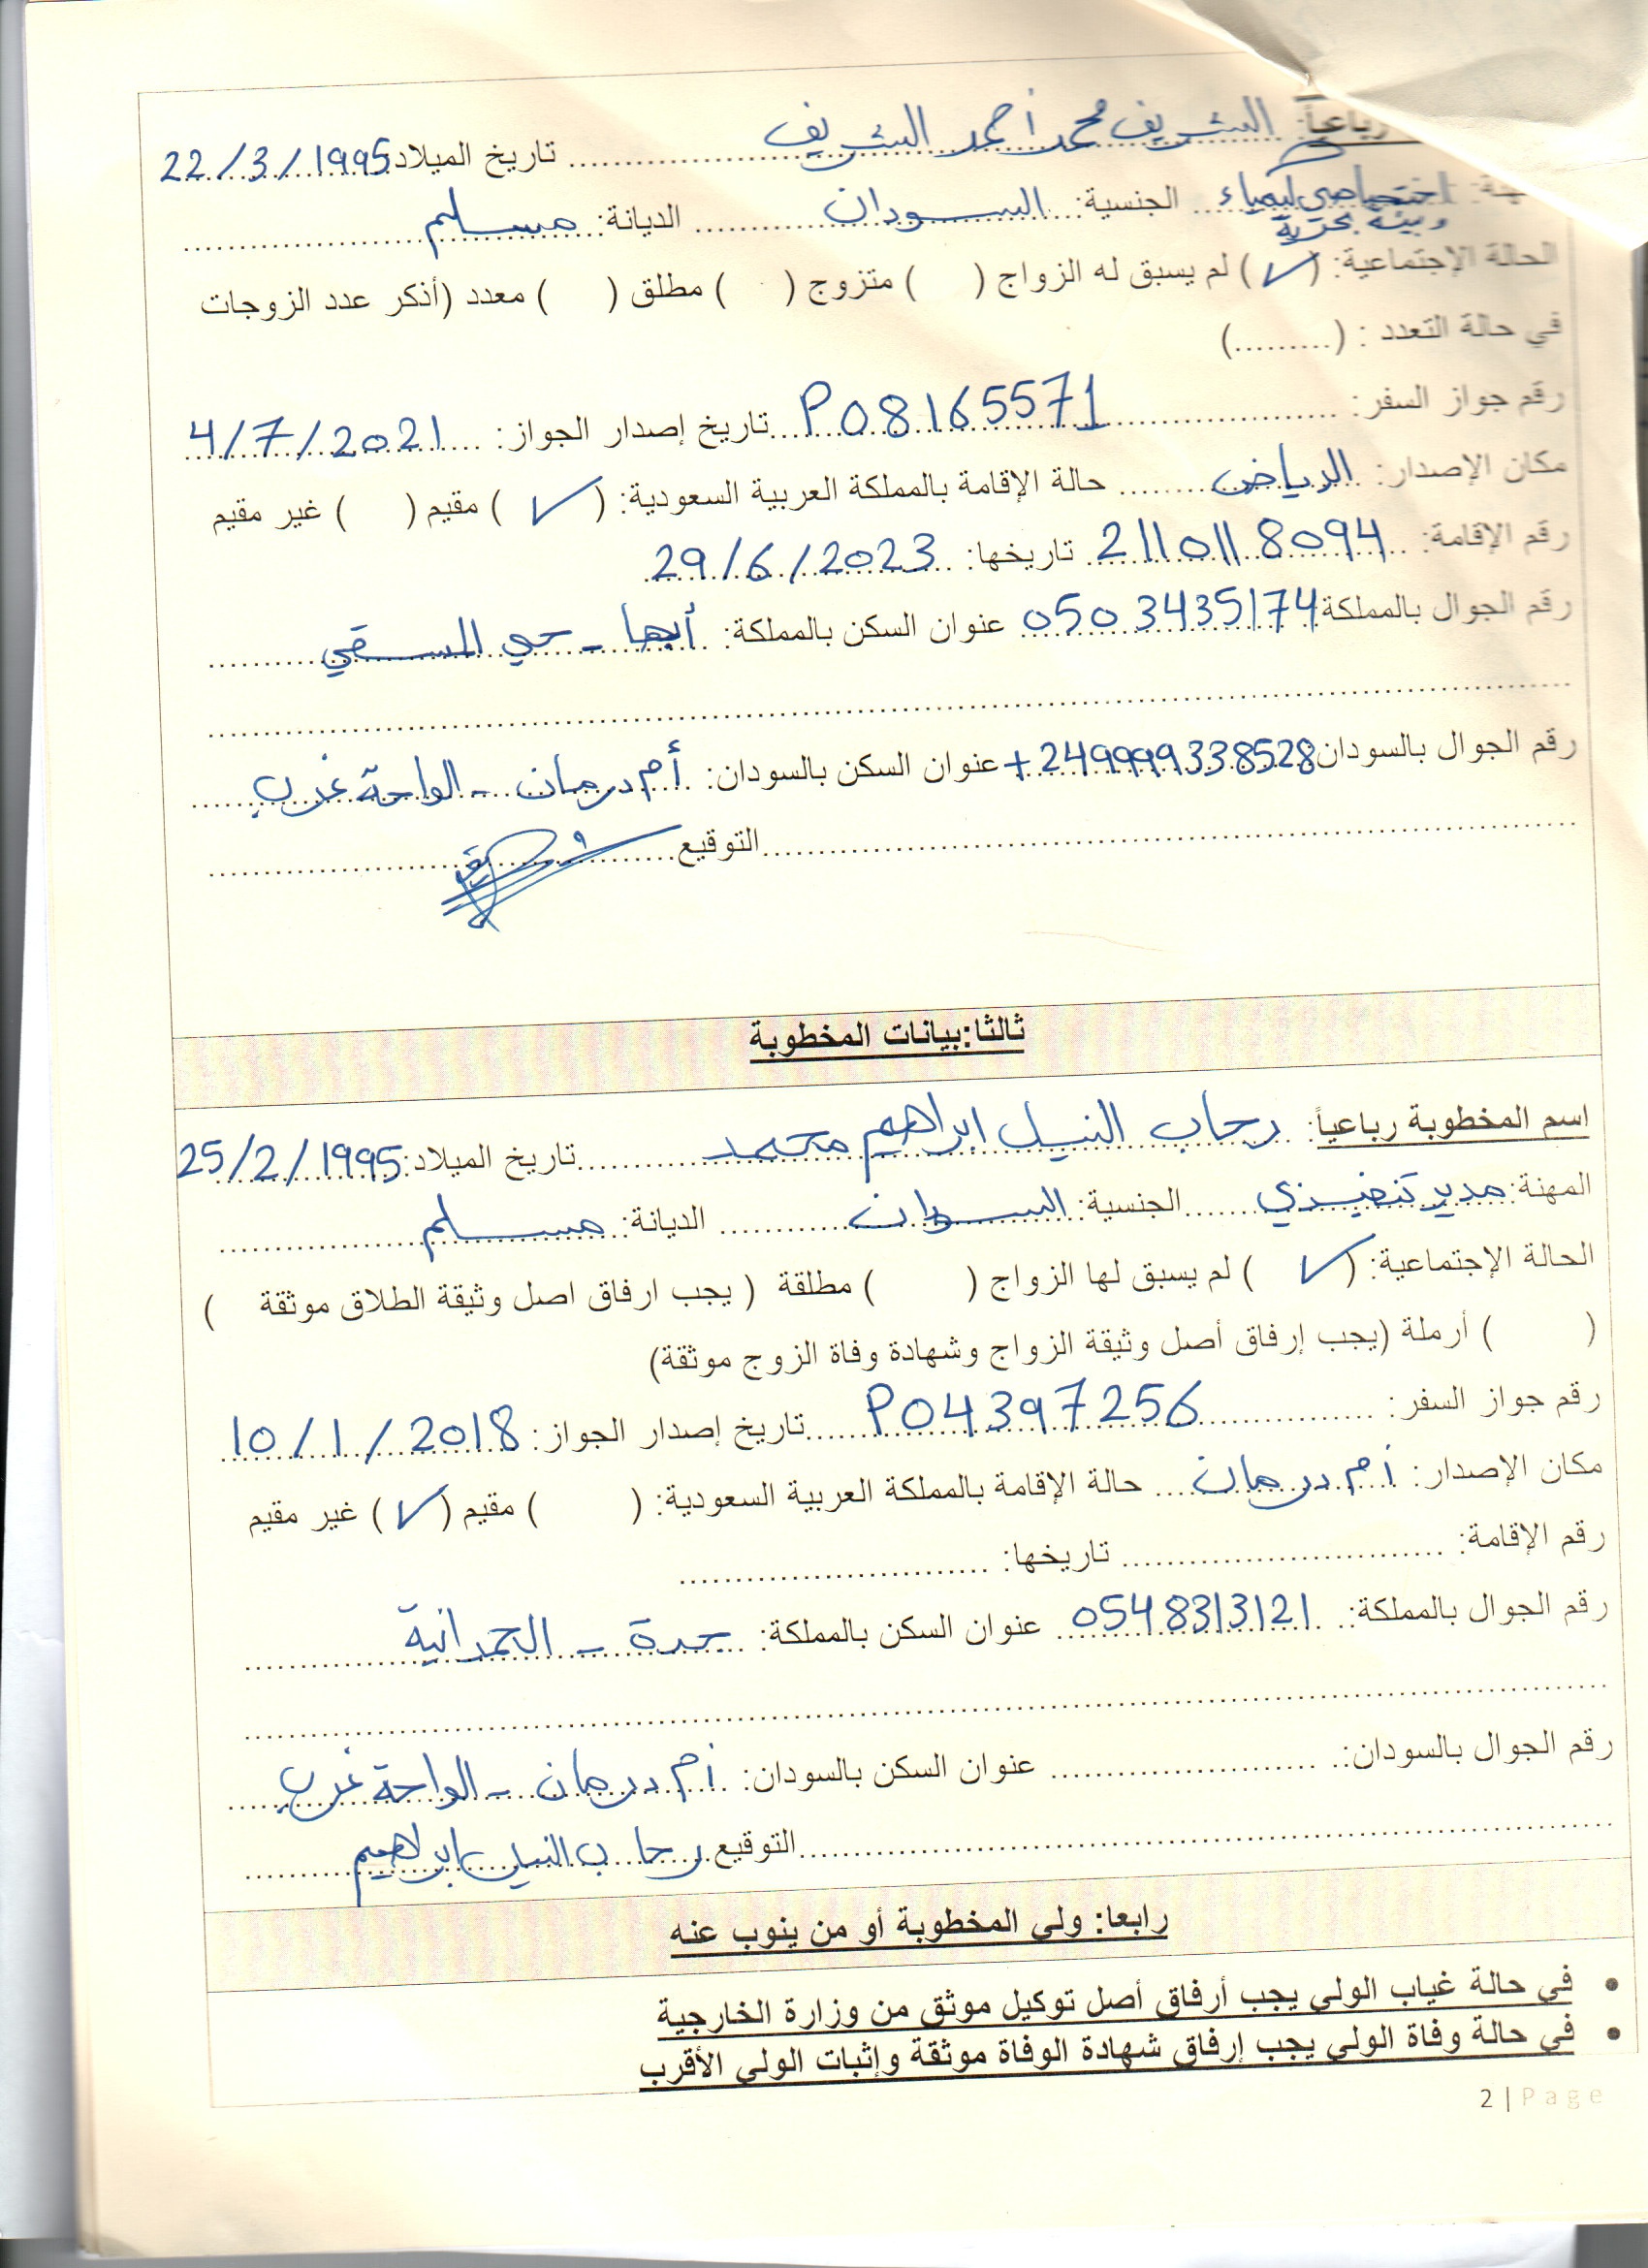 رباعياً: الشريف محمد أحمد الشريف تاريخ الميلاد 22/3/1995
اختصاصي كيمياء وبيئة بحرية الجنسية: السودان الديانة: مسلم
الحالة الإجتماعية: (✓) لم يسبق له الزواج ( ) متزوج ( ) مطلق ( ) معدد (أذكر عدد الزوجات
في حالة التعدد : (.........)
رقم جواز السفر: P08165571 تاريخ إصدار الجواز: 4/7/2021
مكان الإصدار: الرياض حالة الإقامة بالمملكة العربية السعودية: (✓) مقيم ( ) غير مقيم
رقم الإقامة: 2110118094 تاريخها: 29/6/2023
رقم الجوال بالمملكة 0503435174 عنوان السكن بالمملكة: أبها - حي المسقي
رقم الجوال بالسودان +249999338528 عنوان السكن بالسودان: أم درمان - الواحة غرب
التوقيع
ثالثا:بيانات المخطوبة
اسم المخطوبة رباعياً: رحاب النيل ابراهيم محمد تاريخ الميلاد: 25/2/1995
المهنة: مدير تنفيذي الجنسية: السودان الديانة: مسلم
الحالة الإجتماعية: (✓) لم يسبق لها الزواج ( ) مطلقة ( يجب ارفاق اصل وثيقة الطلاق موثقة )
( ) أرملة (يجب إرفاق أصل وثيقة الزواج وشهادة وفاة الزوج موثقة)
رقم جواز السفر: P04397256 تاريخ إصدار الجواز: 10/1/2018
مكان الإصدار: أم درمان حالة الإقامة بالمملكة العربية السعودية: ( ) مقيم (✓) غير مقيم
رقم الإقامة: تاريخها:
رقم الجوال بالمملكة: 0548313121 عنوان السكن بالمملكة: جدة - الحمدانية
رقم الجوال بالسودان: عنوان السكن بالسودان: أم درمان - الواحة غرب
التوقيع رحاب النيل ابراهيم
رابعا: ولي المخطوبة أو من ينوب عنه
• في حالة غياب الولي يجب أرفاق أصل توكيل موثق من وزارة الخارجية
• في حالة وفاة الولي يجب إرفاق شهادة الوفاة موثقة وإثبات الولي الأقرب
2 | Page